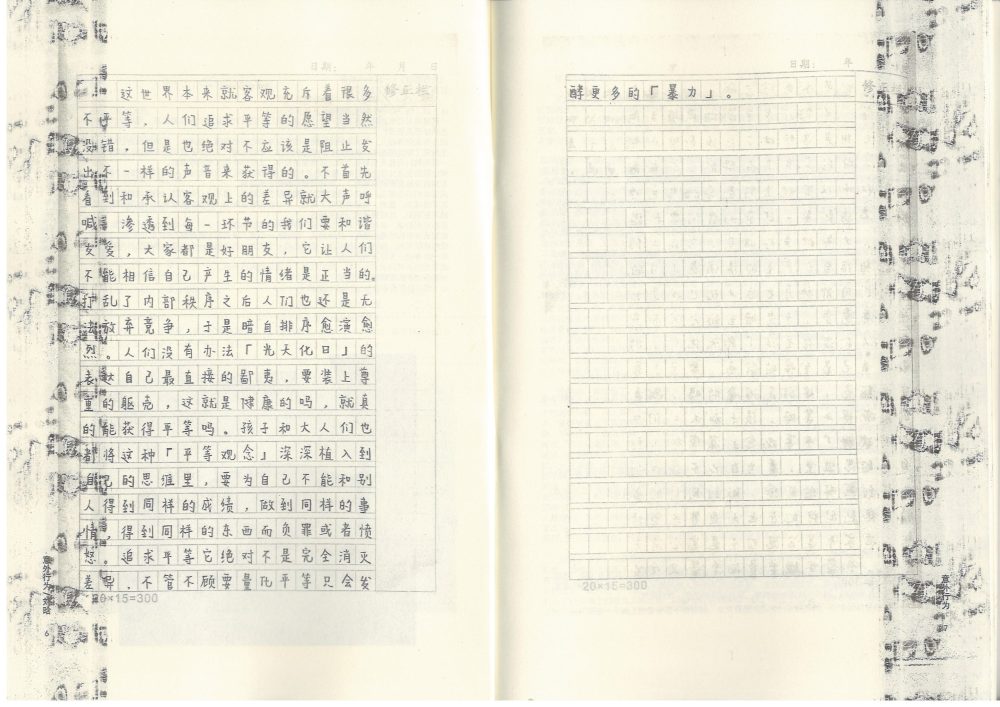 日期： 年 月 日
修正栏
这世界本来就客观充斥着很多
不平等，人们追求平等的愿望当然
没错，但是也绝对不应该是阻止发
出不一样的声音来获得的。不首先
看到和承认客观上的差异就大声呼
喊，渗透到每一环节的我们要和谐
友爱，大家都是好朋友，它让人们
不能相信自己产生的情绪是正当的。
打乱了内部秩序之后人们也还是无
法放弃竞争，于是暗自排序愈演愈
烈。人们没有办法「光天化日」的
表达自己最直接的鄙夷，要装上尊
重的躯壳，这就是健康的吗，就真
的能获得平等吗。孩子和大人们也
都将这种「平等观念」深深植入到
自己的思维里，要为自己不能和别
人得到同样的成绩，做到同样的事
情，得到同样的东西而负罪或者愤
怒。追求平等它绝对不是完全消灭
差异，不管不顾要量化平等只会发
20×15=300
意外行为
6
日期： 年
修
酵更多的「暴力」。
20×15=300
意外行为